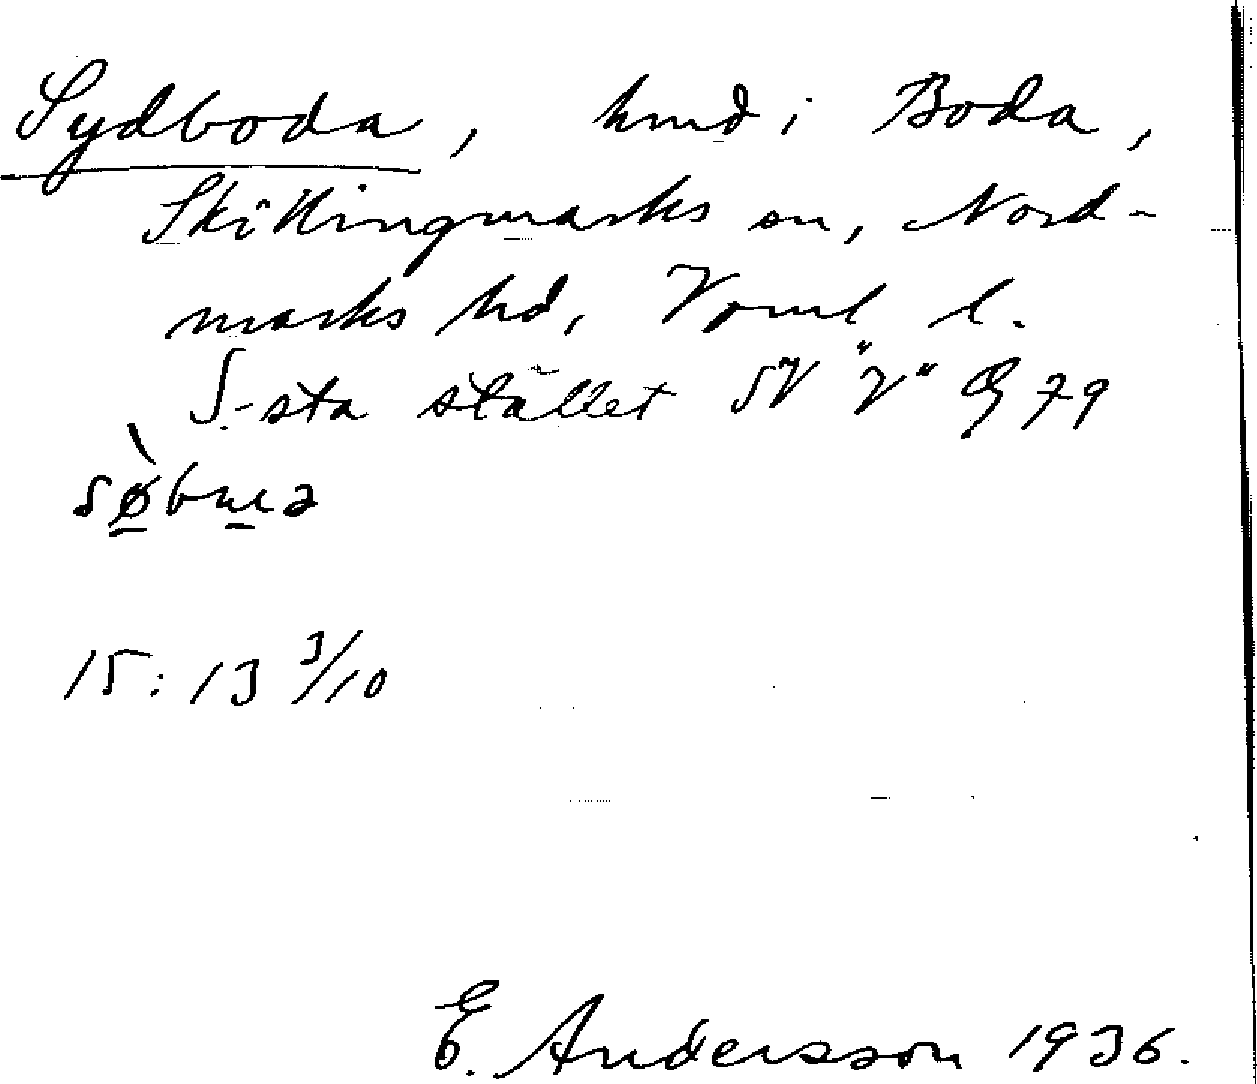 Sydboda, hmd i Boda,
Skillingmarks sn, Nord-
marks hd, Vrml l.
S.-sta stället SV "V" Q 79
sø̀bɯa
15: 13 3/10
E. Andersson 1936.